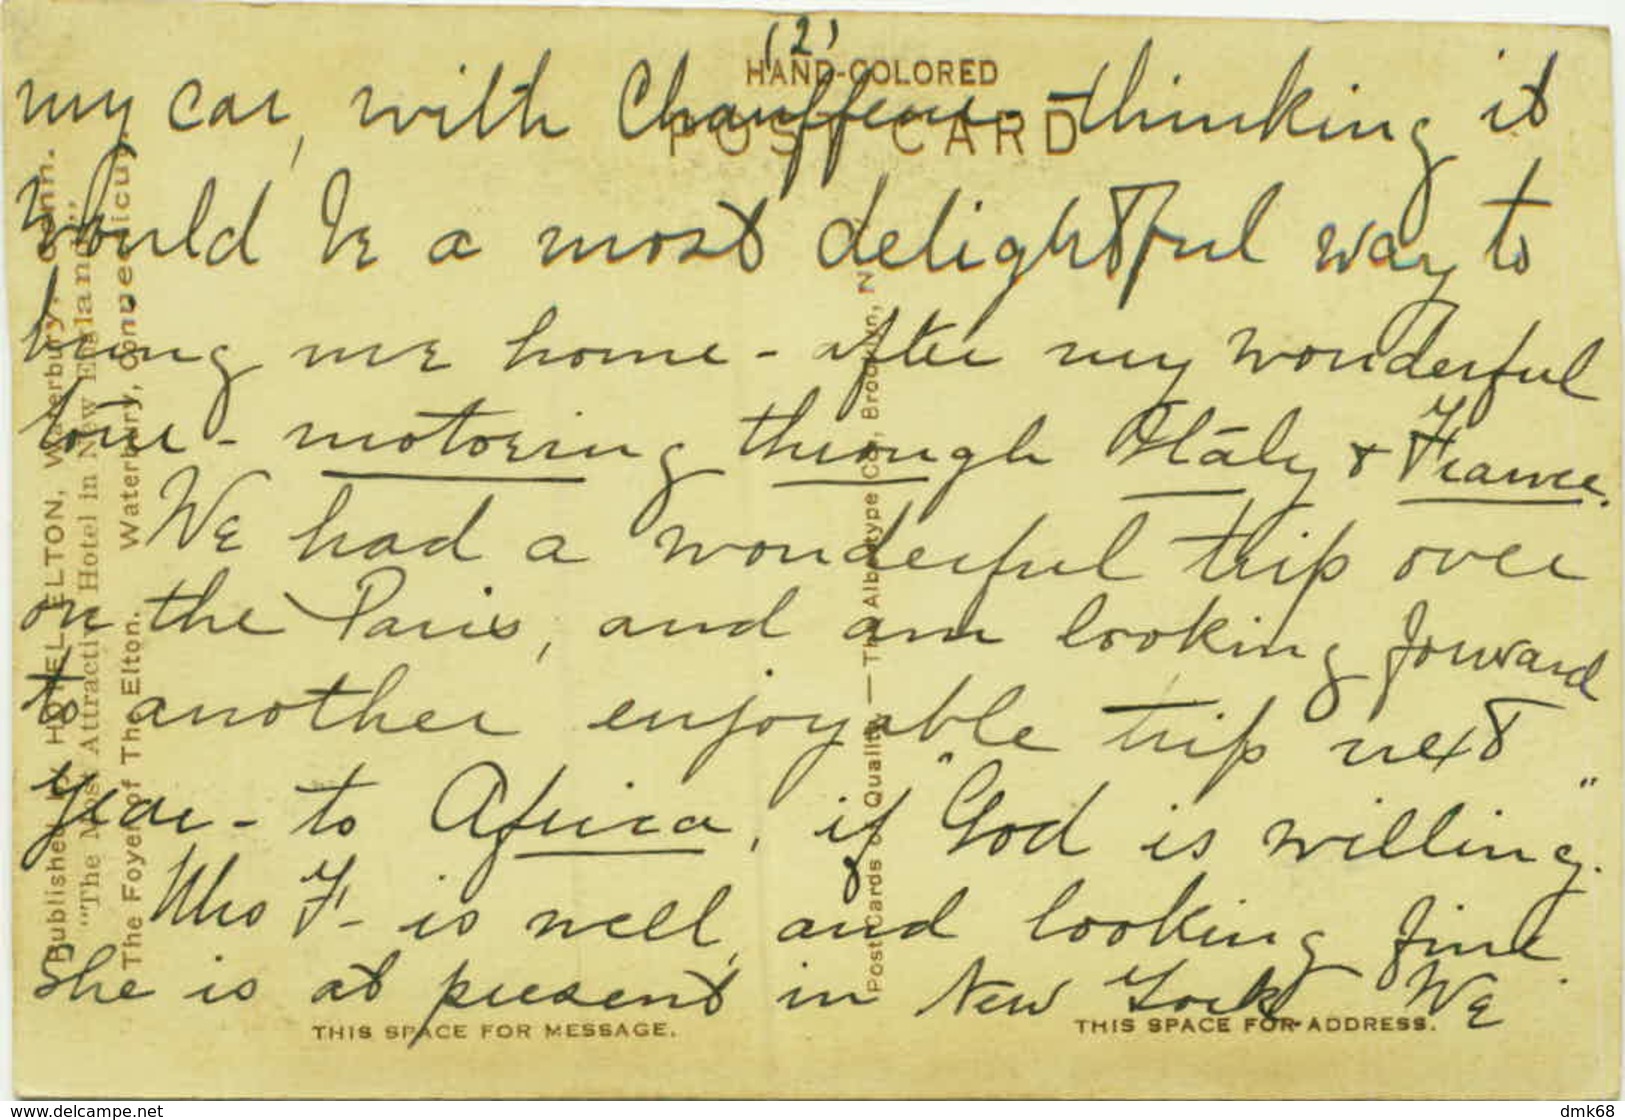 (2)
HAND-COLORED
POST CARD
my car, with Chauffeur - thinking it
would be a most delightful way to
bring me home - after my wonderful
tour - motoring through Italy & France.
We had a wonderful trip over
on the Paris, and am looking forward
to another enjoyable trip next
year - to Africa, if "God is willing."
Mrs F - is well, and looking fine.
She is at present in New York. We
THIS SPACE FOR MESSAGE.
THIS SPACE FOR ADDRESS.
Published by HOTEL ELTON, Waterbury, Conn.
"The Most Attractive Hotel in New England",
The Foyer of The Elton. Waterbury, Connecticut.
Post Cards of Quality. — The Albertype Co., Brooklyn, N
www.delcampe.net
dmk68